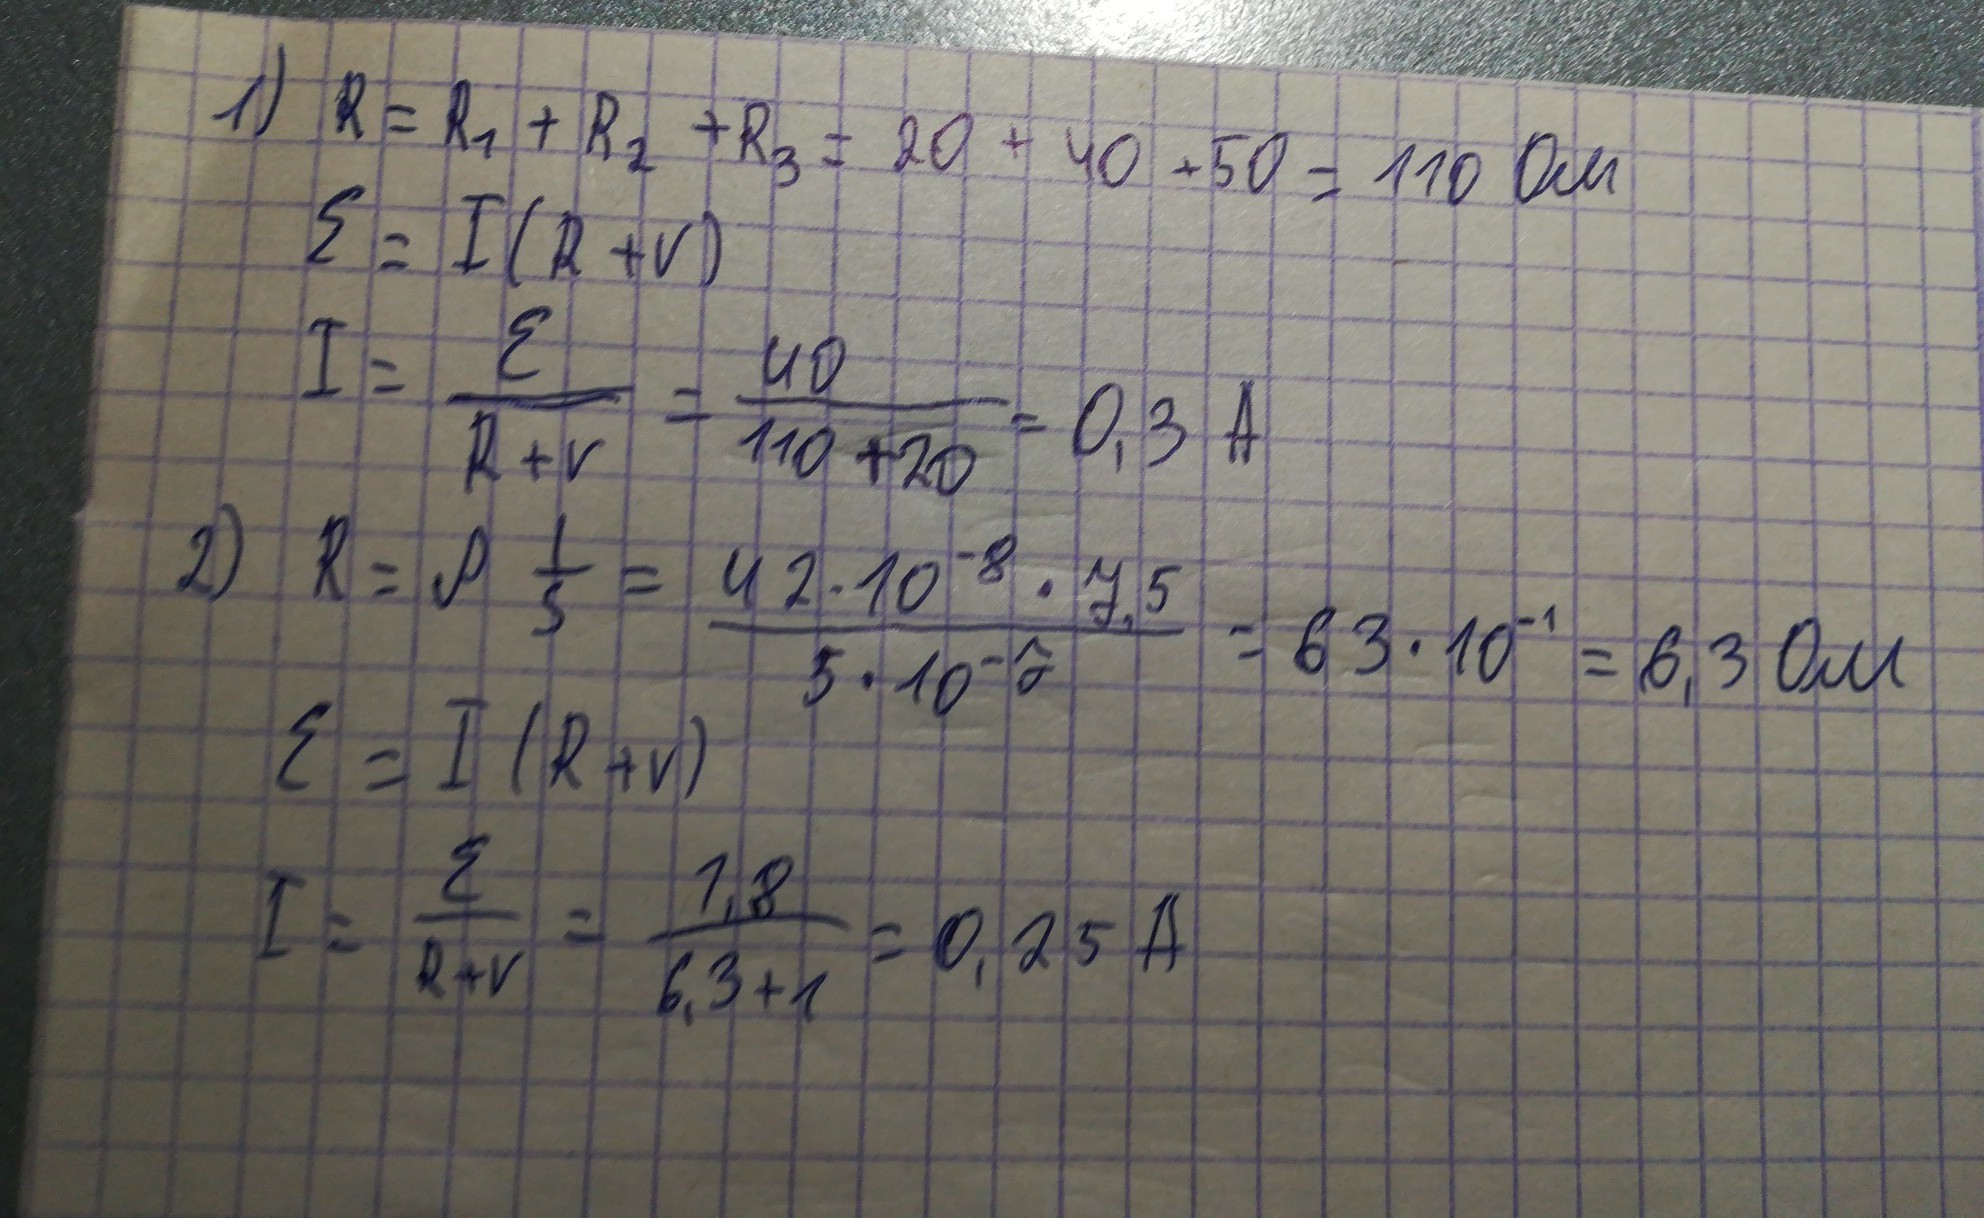 1) R = R₁ + R₂ + R₃ = 20 + 40 + 50 = 110 Ом
ℰ = I (R + r)
I = ℰ / (R + r) = 40 / (110 + 20) = 0,3 А
2) R = ρ l/s = (42 · 10⁻⁸ · 7,5) / (5 · 10⁻⁷) = 63 · 10⁻¹ = 6,3 Ом
ℰ = I (R + r)
I = ℰ / (R + r) = 1,8 / (6,3 + 1) = 0,25 А